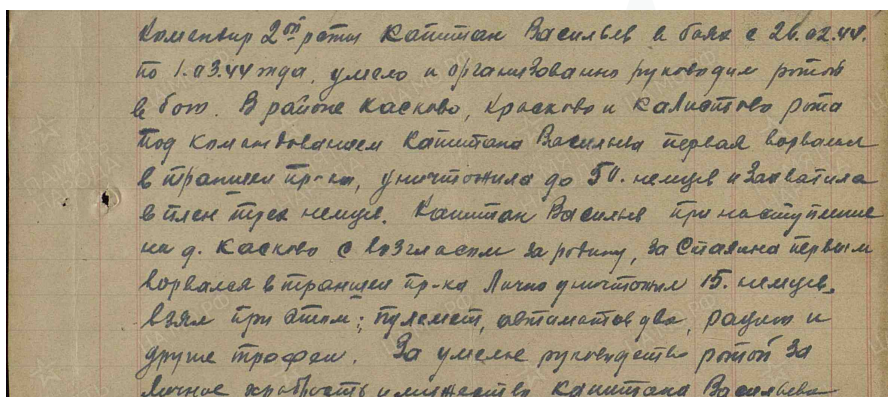 Командир 2ой роты капитан Васильев в боях с 26.02.44.
по 1.03.44 года, умело и организованно руководил ротой
в бою. В районе Касково, Красково и Калистово рота
под командованием капитана Васильева первая ворвалась
в траншеи пр-ка, уничтожила до 50. немцев и захватила
в плен трех немцев. Капитан Васильев при наступление
на д. Касково с возгласом за родину, за Сталина первым
ворвался в траншеи пр-ка Лично уничтожил 15. немцев,
взял при этом: пулемет, автоматов два, рацию и
другие трофеи. За умелое руководство ротой за
личное храбрость и мужество капитана Васильева